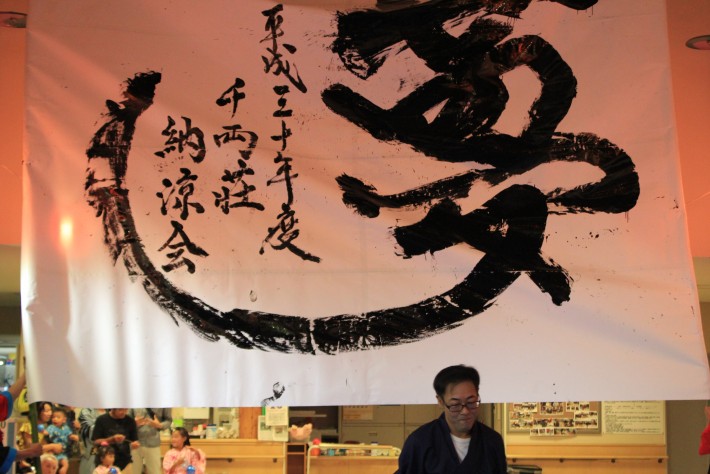 夢
平成三十年度
千両荘
納涼会